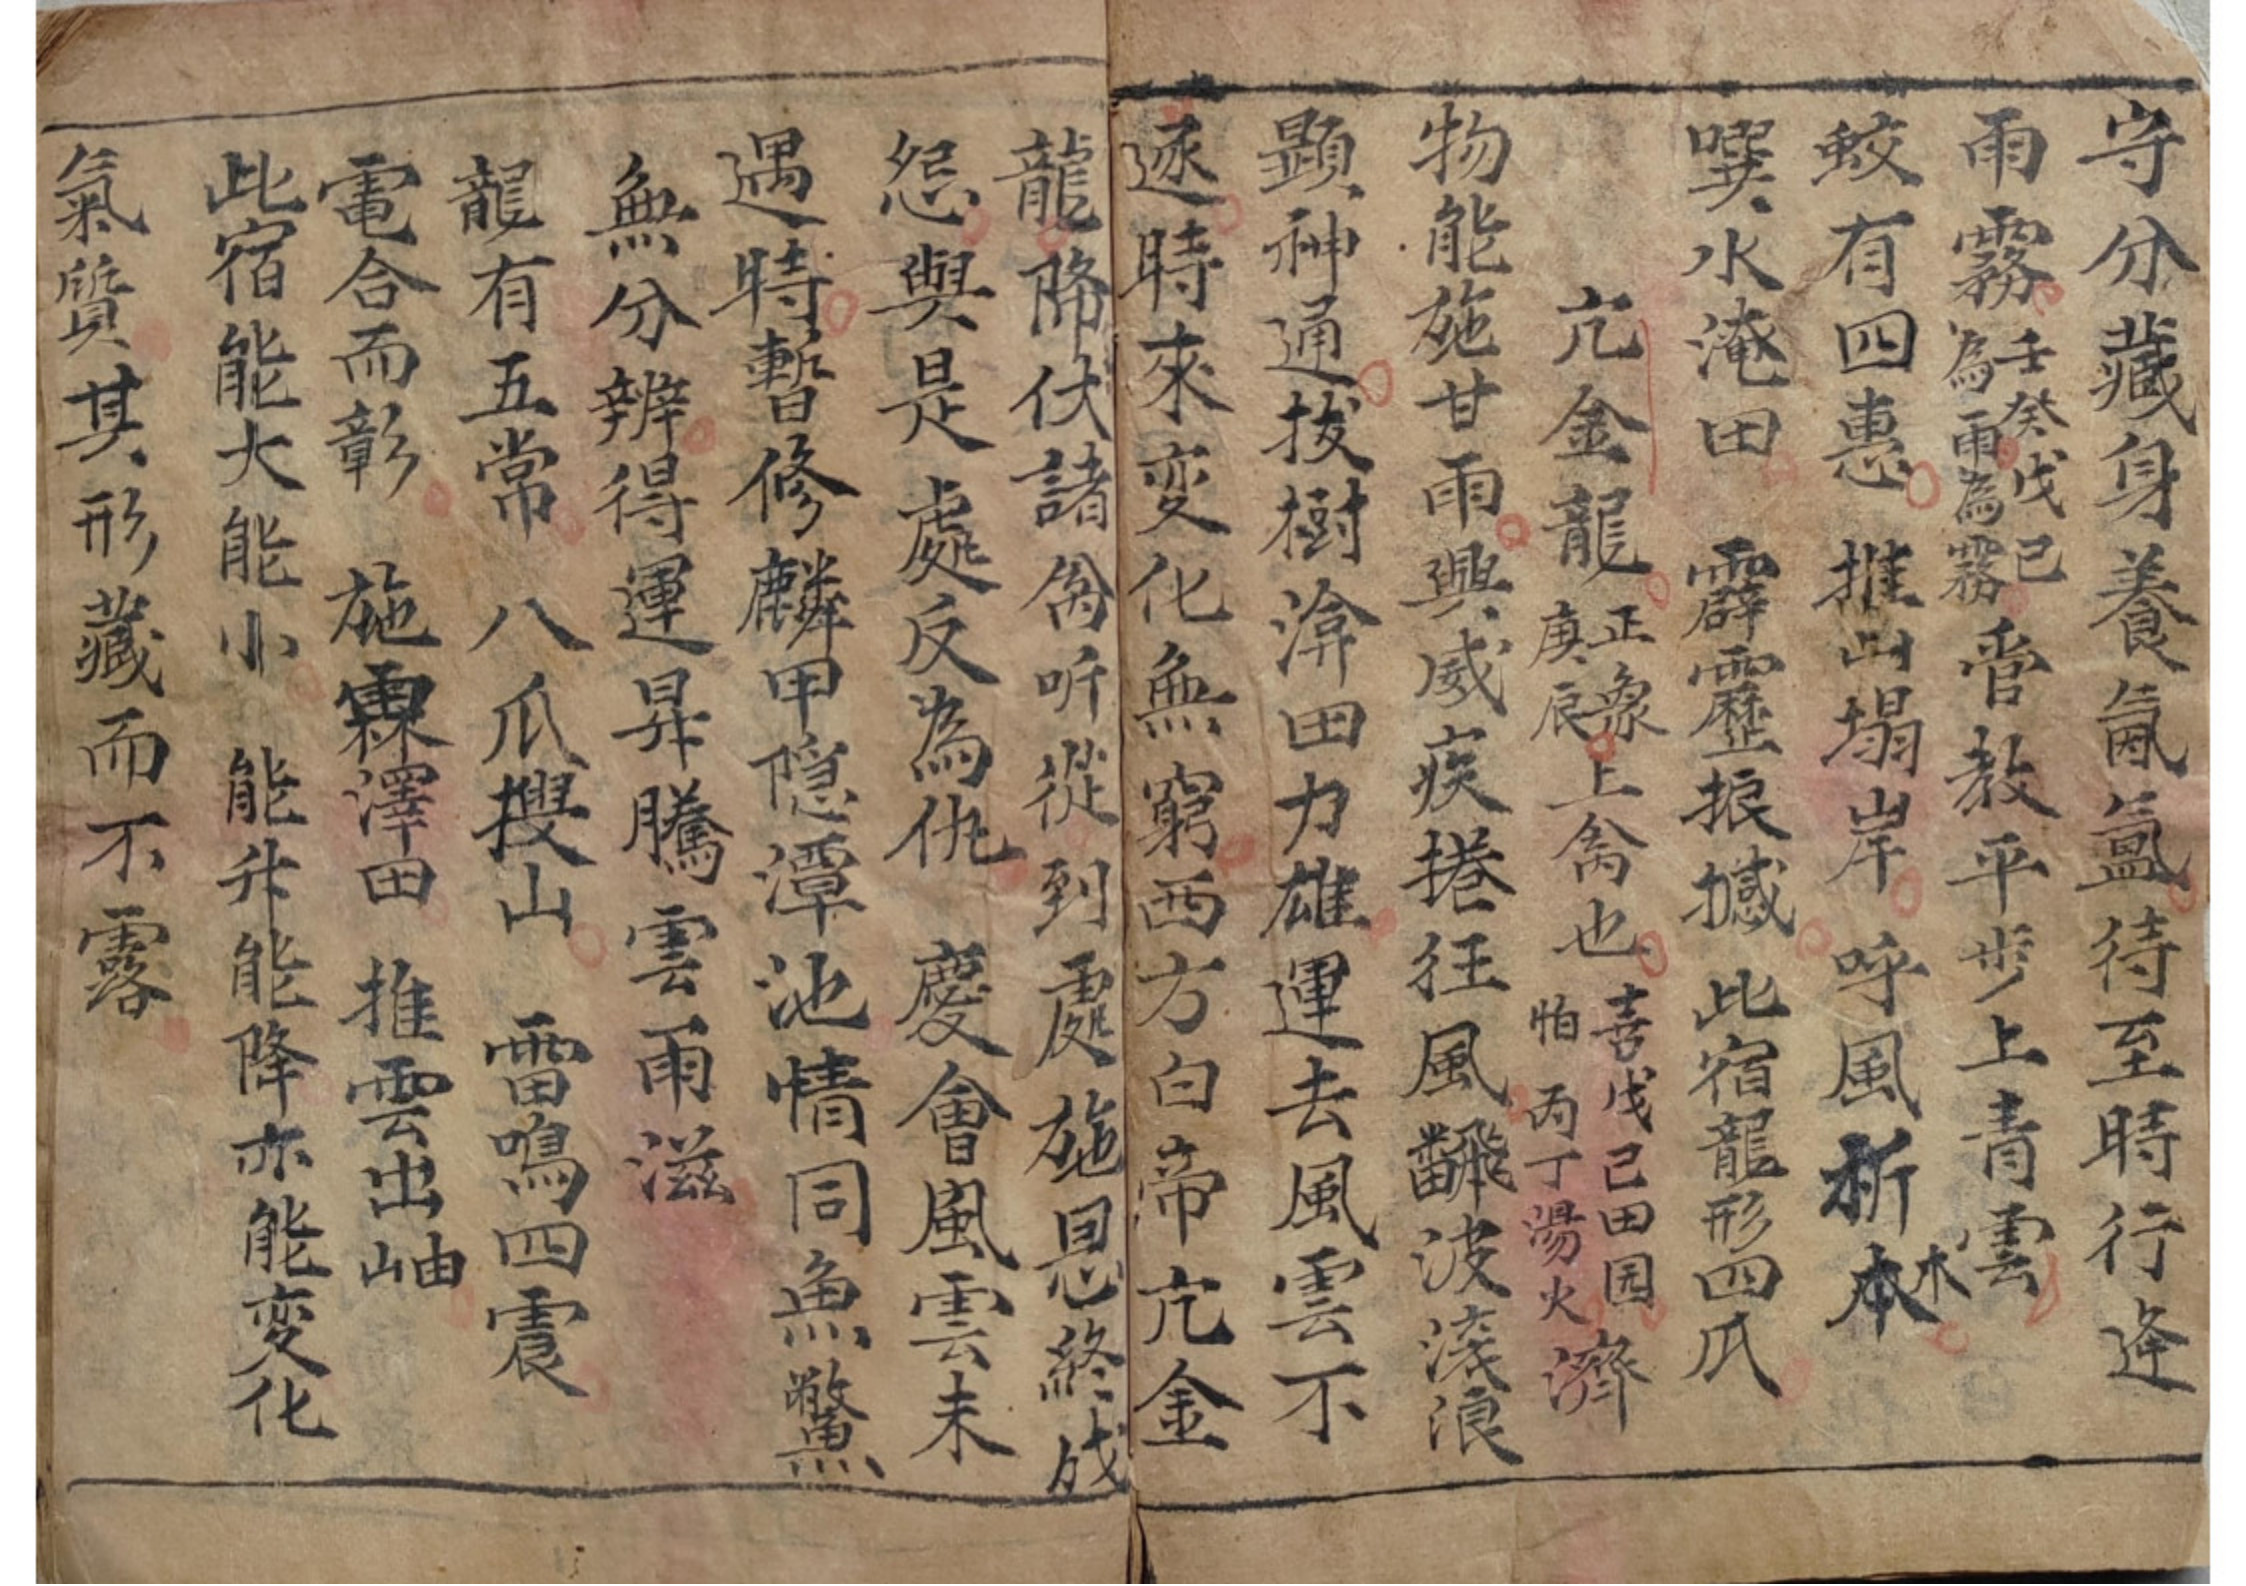 守分藏身養氤氳待至時行逢
雨霧壬癸戊己為雨為霧管教平步上青雲
蛟有四惠推山塌岸呼風折本木
噀水淹田霹靂掀撼此宿龍形四爪
亢金龍正象庚辰上禽也喜戊己田园怕丙丁湯火濟
物能施甘雨興威疾捲狂風飜波滚浪
顕神通拔樹渰田力雄運去風雲不
逐時來変化無窮西方白帝亢金
龍降伏諸禽听從到處施恩終成
怨與是處反為仇慶會風雲未
遇時暫修麟甲隐潭池情同魚鱉
無分辨得運昇騰雲雨滋
龍有五常八爪搜山雷鳴四震
電合而彰施霖澤田推雲出岫
此宿能大能小能升能降亦能変化
氣質其形藏而不露